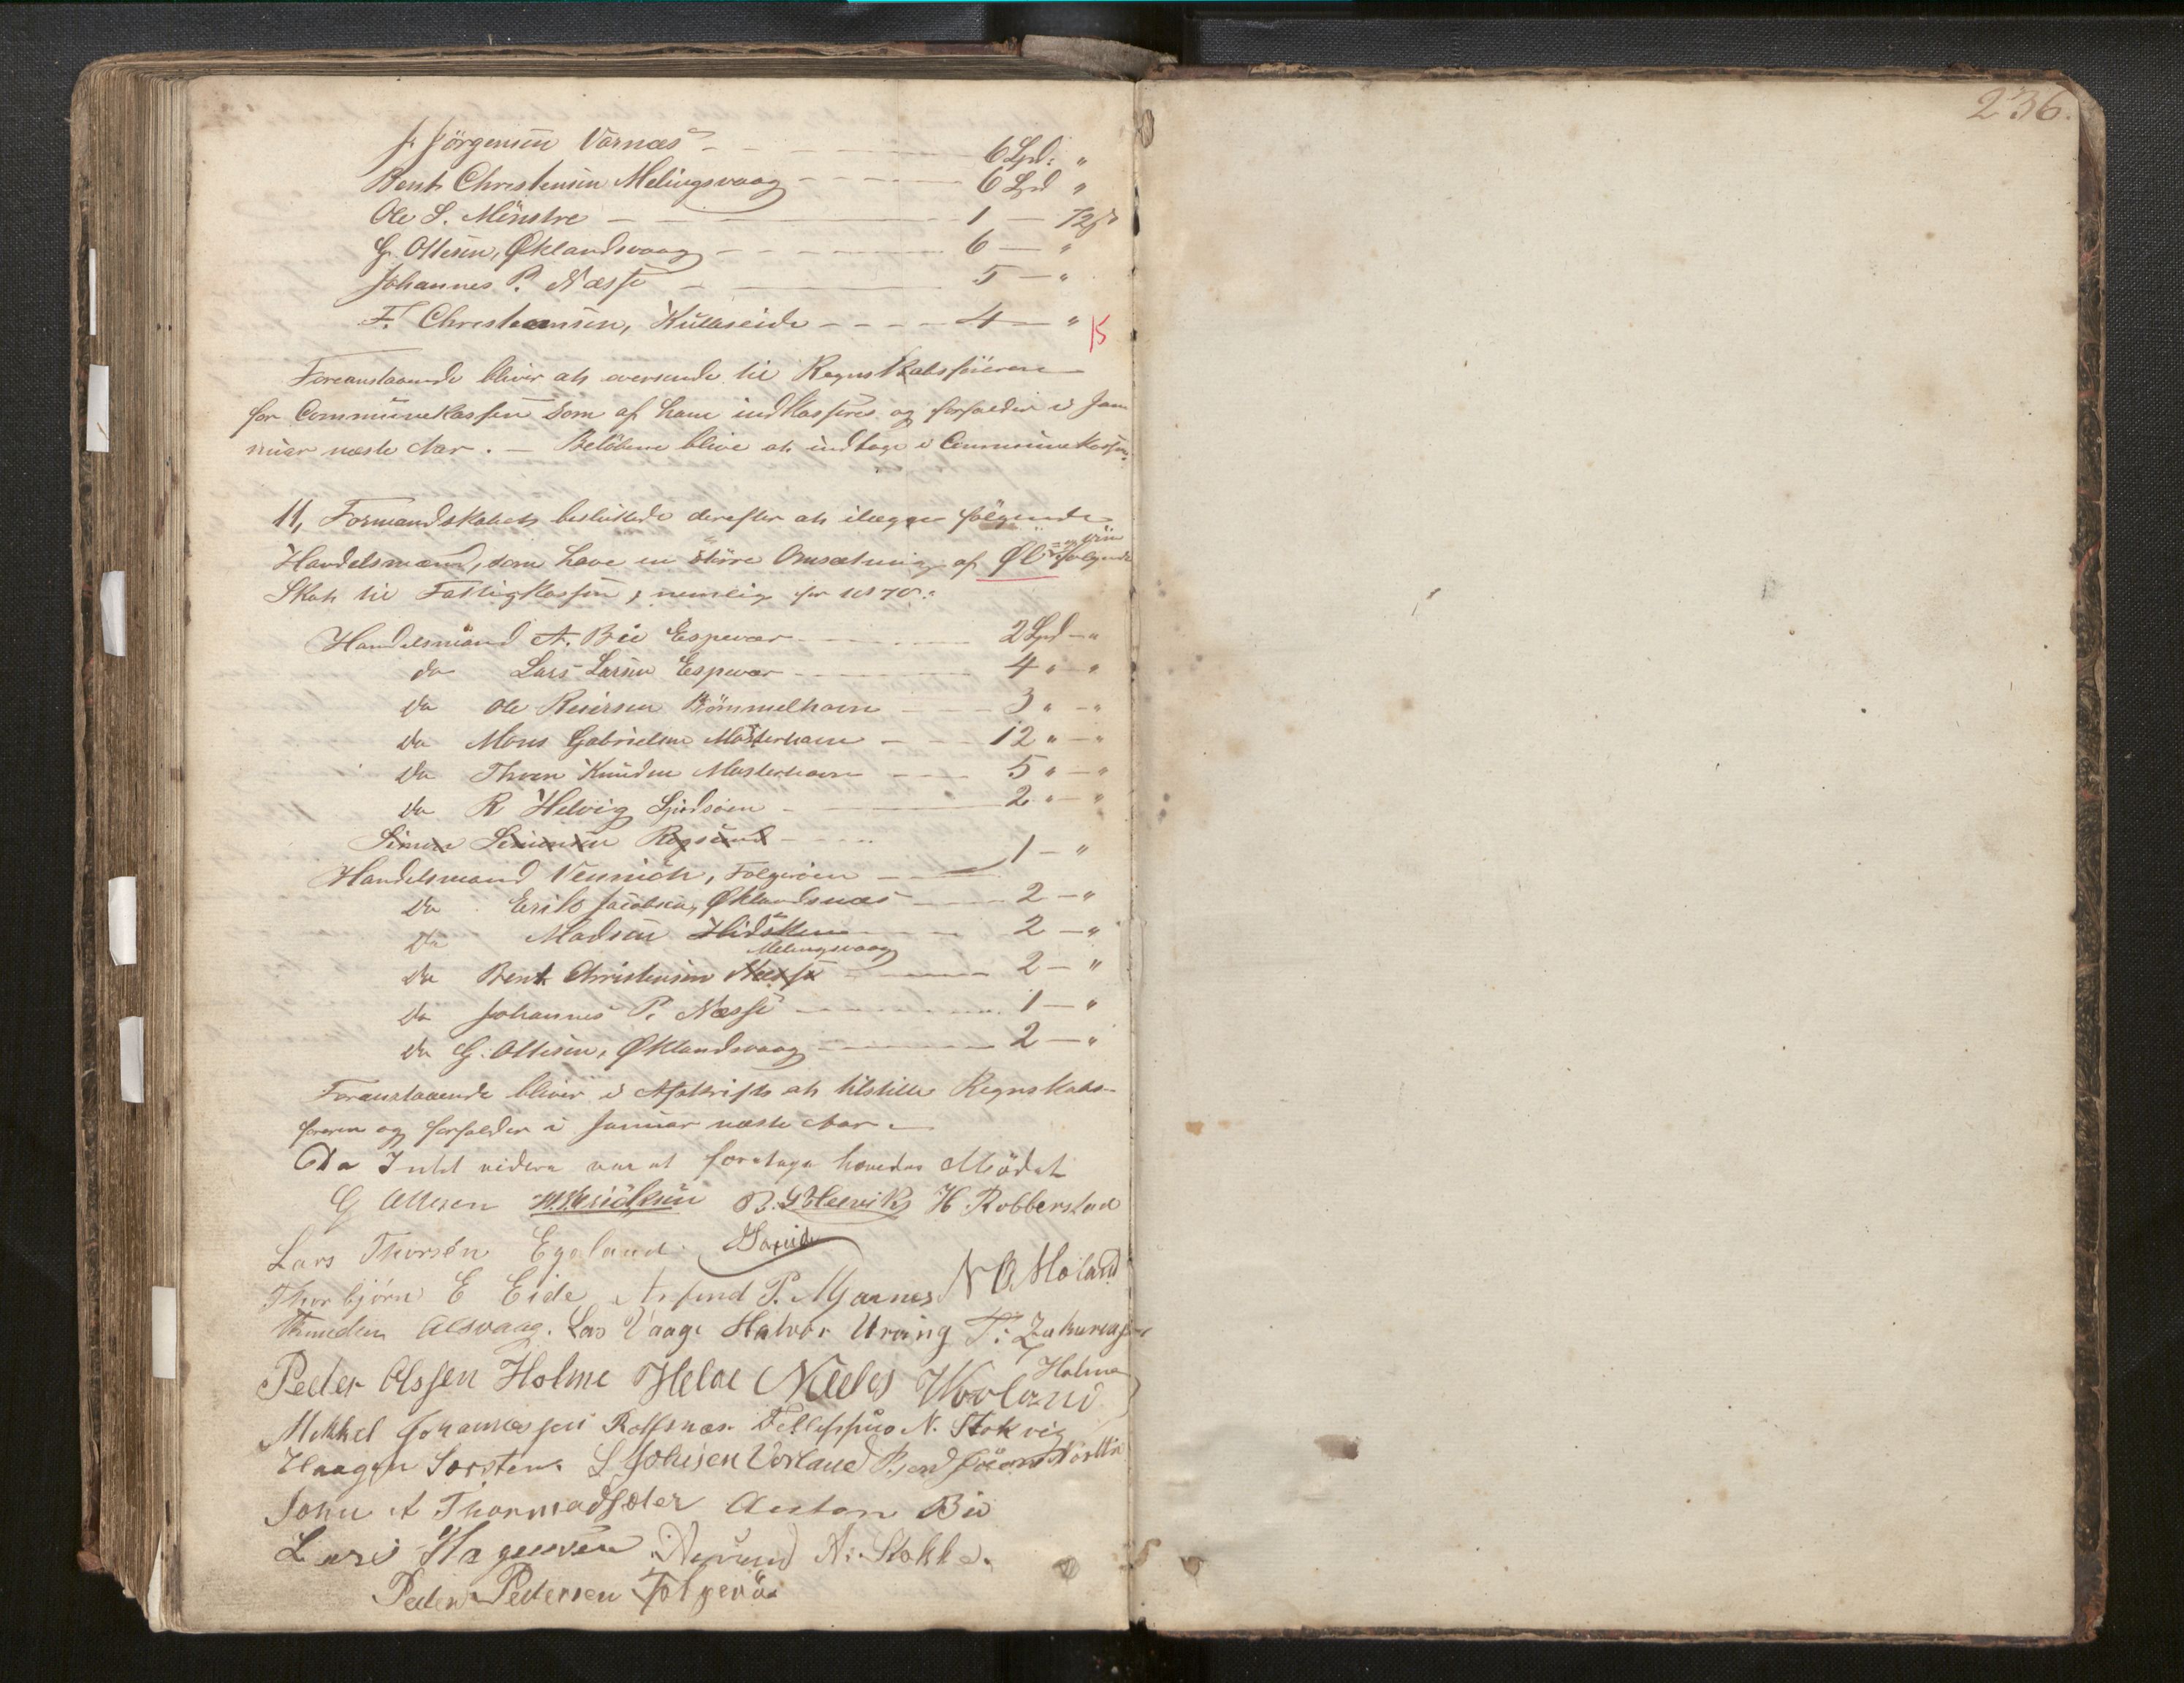 236.
J. Jörgensen Varnæs — 6 Spd. "
Bent Christensen Melingsvaag — 6 Spd "
Ole S. Mönstre — 1 — 72 s
G. Ottesen, Øklandsvaag — 6 — "
Johannes P. Næsse — 5 — "
F. Christensen, Kulleseide — 4 — "
15
Foranstaaende bliver at oversende til Regnskabsföreren
for Communekassen som af ham indkasseres og forfalder i Jan
nuar næste Aar. — Belöbene blive at indtage i Communekassen.
11, Formandskabet besluttede derefter at ilægge fölgende
Handelsmænd, som have en större Omsætning af Øl og Viin fölgende
Skat til Fattigkassen, nemlig for 1870:
Handelsmand A. Bie Espevær — 2 Spd — "
do Lars Larsen Espevær — 4 " — "
do Ole Reiersen Bömmelhavn — 3 " — "
do Mons Gabrielsen Mosterhavn — 12 " — "
do Thoen Knudsen Mosterhavn — 5 " — "
do R Helvig — 2 " — "
Simon Simonsen Røgsund
Handelsmand Wennich, Folgeröen — 1 — "
do Erik Jacobsen, Øklandsnæs — 2 — "
do Madsen Hidsken — 2 — "
Melingsvaag
do Bent Christensen Næsse — 2 — "
do Johannes P. Næsse — 1 — "
do G. Ottesen, Øklandsvaag — 2 — "
Foranstaaende bliver i Afskrift at tilstille Regnskabs-
föreren og forfalder i Januar næste Aar. —
Da Intet videre var at foretage hævedes Mödet
G Ottesen R. G Helvik H. Robberstad
Lars Thorsen Egeland
Thorbjörn E Eide Arfind P. Mjannes N O Moland
Knudsen Alsvaag. Lars Vaage Halvor Uraing T. Zakariasen
Holme
Peder Olssen Holme Helge Neels Worland
Mikkel Johannessen Rolfsnæs. Fellippus N. Stokvig
Haagen Sorsten. L Johnsen Vorland
John A Thormodsæter Anton Bie
Lars Hagensen Amund N. Stokke.
Peder Pedersen Folgerö